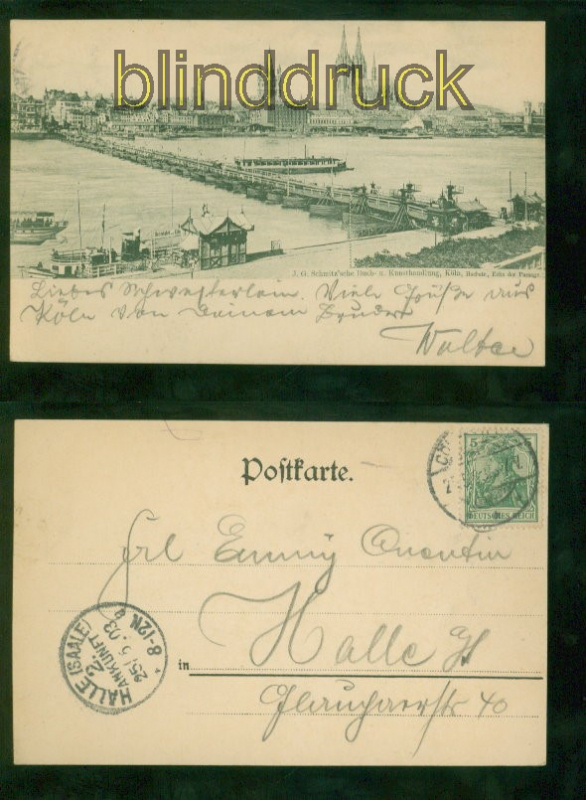 blinddruck
J. G. Schmitz'sche Buch- u. Kunsthandlung, Köln, Hochstr., Ecke der Passage.
Liebes Schwesterlein. Viele Grüße aus
Köln von Deinem Bruder
Walter
Postkarte.
5
DEUTSCHES REICH
Frl Emmy Quentin
Halle
in
Glauchaerstr 40
HALLE (SAALE)
2.
ANKUNFT
25.5.03
8-12N.